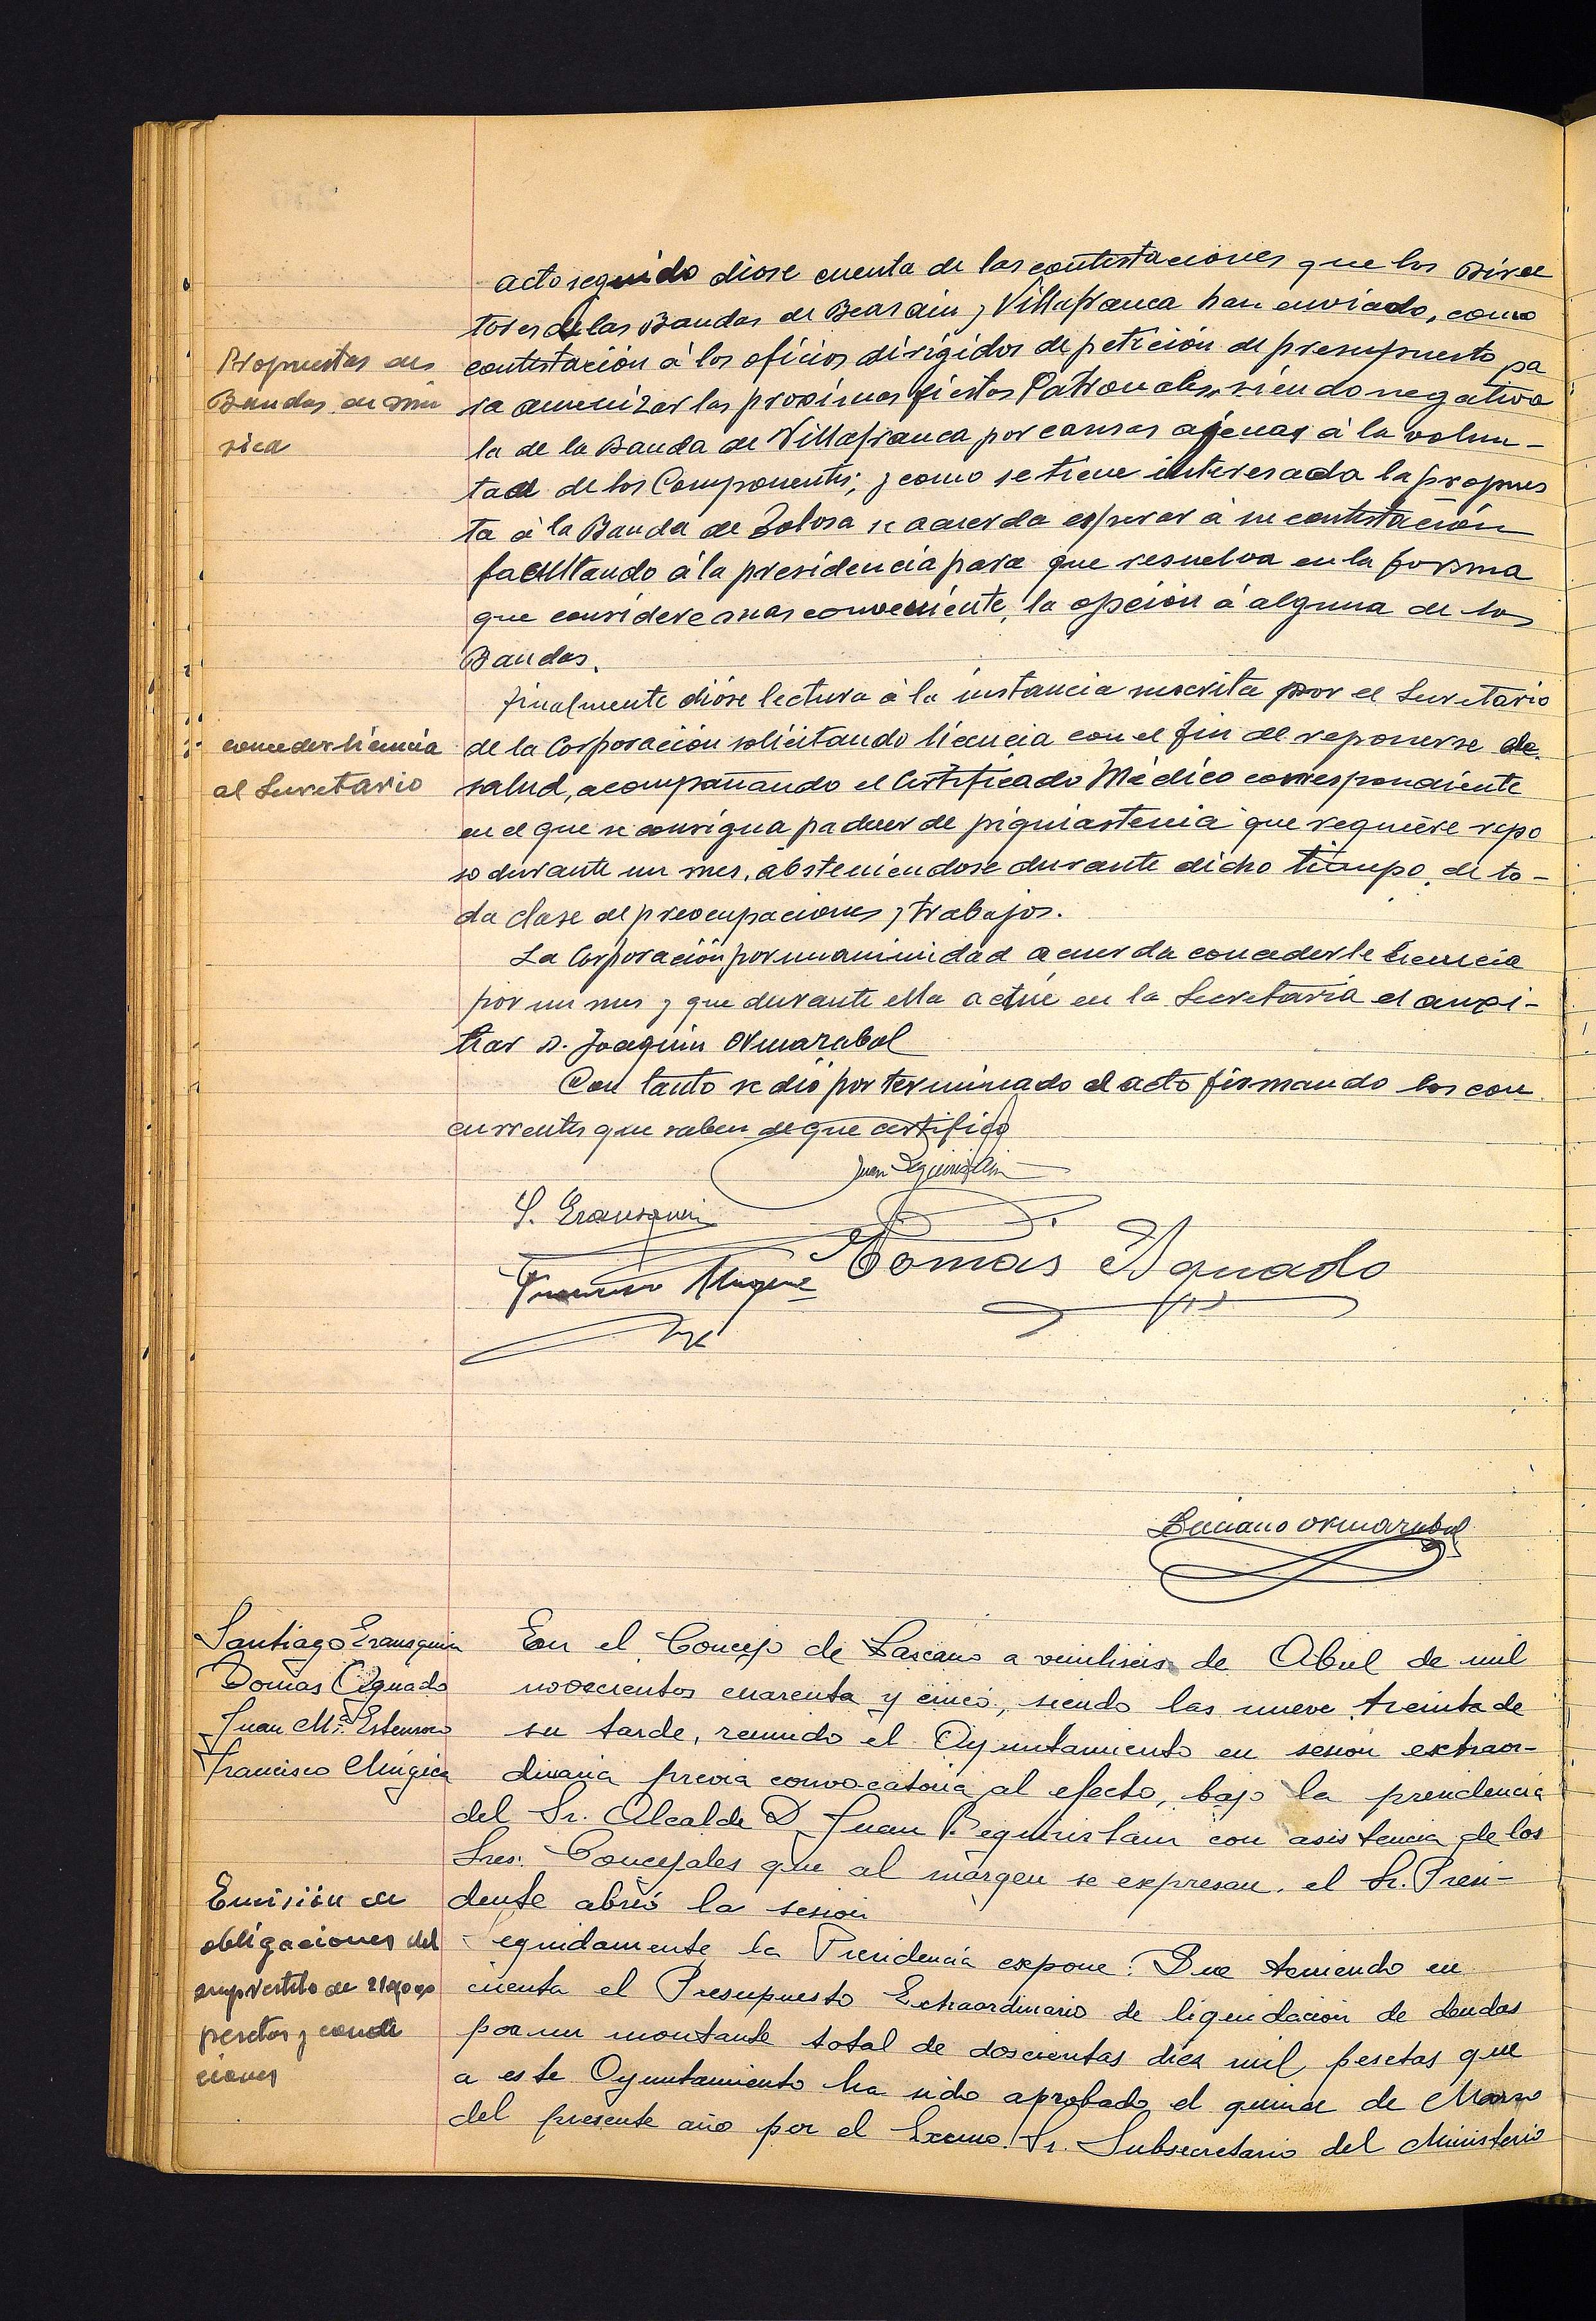 acto seguido diose cuenta de las contestaciones que los Direc
tores de las Bandas de Beasain y Villafranca han enviado, como
contestación á los oficios dirigidos de petición de presupuesto pa
ra amenizar las proximas fiestas Patronales, siendo negativa
la de la Banda de Villafranca por causas agenas á la volun-
tad de los Componentes; y como se tiene interesada la propues
ta á la Banda de Tolosa se acuerda esperar á su contestación
facultando á la presidencia para que resuelva en la forma
que considere mas conveniente, la opción á alguna de las
Bandas.
Propuestas de
Bandas de mú
sica
finalmente dióse lectura á la instancia suscrita por el Secretario
de la Corporación solicitando licencia con el fin de reponerse de
salud, acompañando el Certificado Médico correspondiente
en el que se consigna padecer de psiquiastenia que requiere repo
so durante un mes, absteniéndose durante dicho tiempo, de to-
da clase de preocupaciones y trabajos.
conceder licencia
al Secretario
La Corporación por unanimidad acuerda concederle licencia
por un mes y que durante ella actúe en la Secretaría el auxi-
liar D. Joaquin Ormazabal
Con tanto se dió por terminado el acto firmando los con
currentes que saben de que certifico
Juan Reguiristain
S. Erausquin
Tomás Aguado
Francisco Múgica
Luciano Ormazabal
Santiago Erausquin
Tomas Aguado
Juan Mª Estensoro
Francisco Múgica
En el Concejo de Lazcano a veintiseis de Abril de mil
novecientos cuarenta y cinco, siendo las nueve treinta de
su tarde, reunido el Ayuntamiento en sesión extraor-
dinaria previa convocatoria al efecto, bajo la presidencia
del Sr. Alcalde D. Juan Reguiristain con asistencia de los
Sres. Concejales que al márgen se expresan, el Sr. Presi-
dente abrió la sesión
Emisión de
obligaciones del
emprestito de 210.000
pesetas y condi
ciones
Seguidamente la Presidencia expone: Que teniendo en
cuenta el Presupuesto Extraordinario de liquidación de deudas
por un montante total de doscientas diez mil pesetas que
a este Ayuntamiento ha sido aprobado el quince de Marzo
del presente año por el Excmo. Sr. Subsecretario del Ministerio